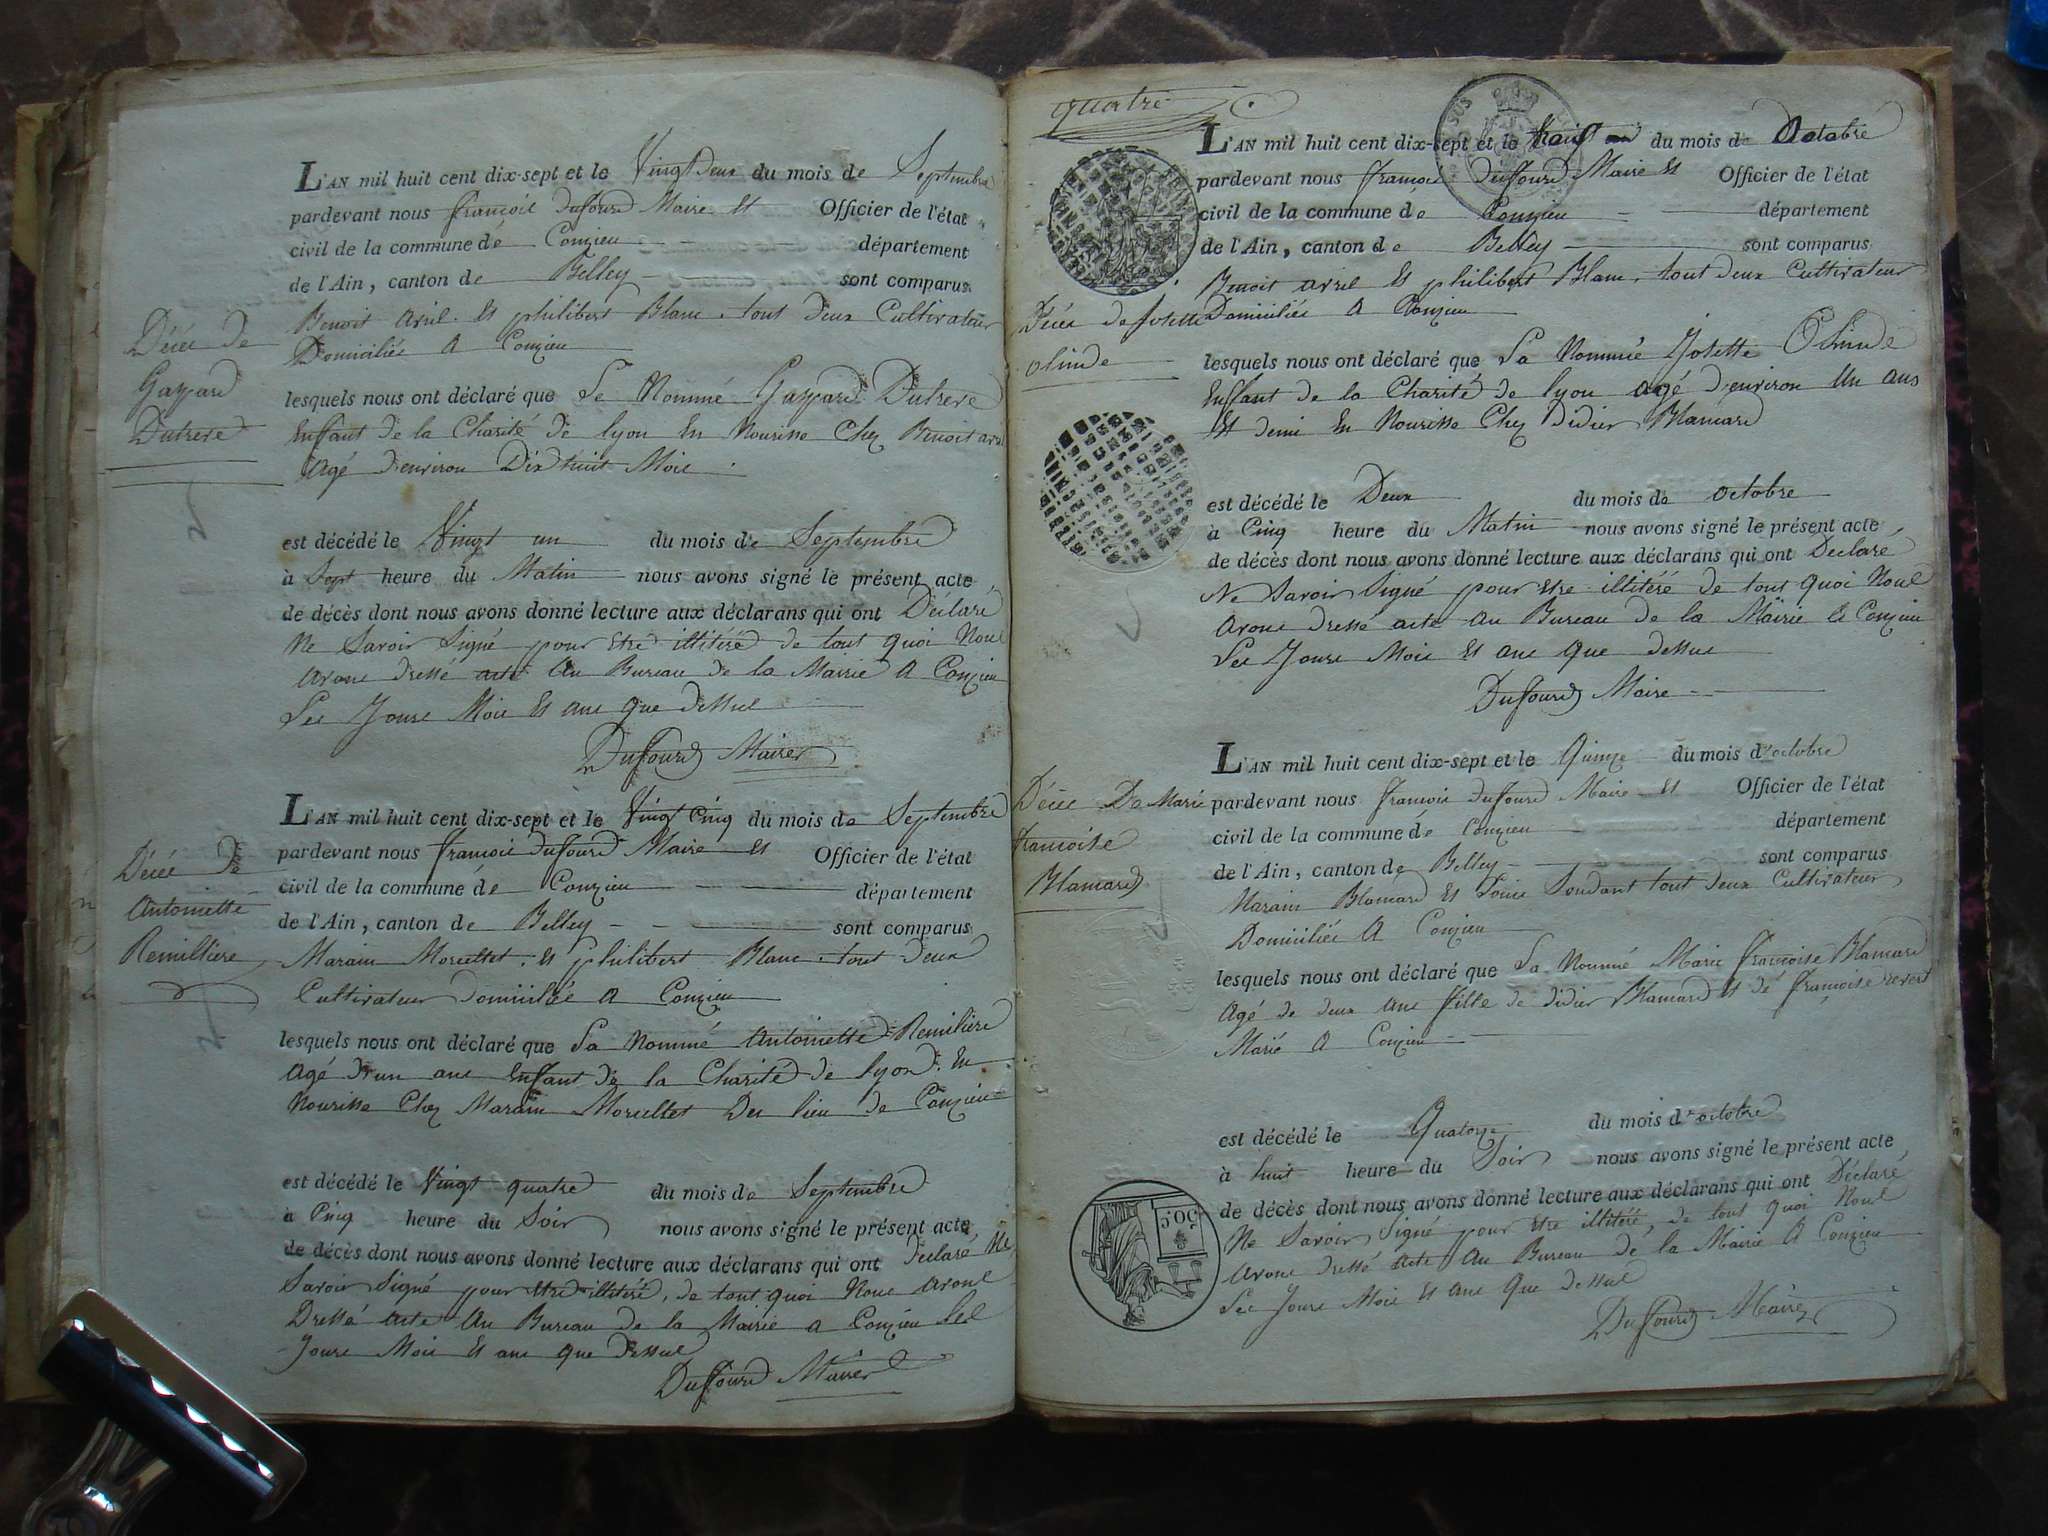 L'AN mil huit cent dix-sept et le Vingt Deux du mois de Septembre
pardevant nous françois Duffourd Maire Et Officier de l'état
civil de la commune de Conzieu département
de l'Ain, canton de Belley sont comparus
Benoit avril Et philibert Blanc tout deux Cultivateur
Domiciliés A Conzieu
Décés de
Gaspard
Dutreve
lesquels nous ont déclaré que Le Nommé Gaspard Dutreve
Enffant de la Charité de lyon En Nourisse Chez Benoit
Agé d'environ Dix huit Mois
est décédé le Vingt un du mois de Septembre
à Sept heure du Matin nous avons signé le présent acte
de décès dont nous avons donné lecture aux déclarans qui ont Déclaré
Ne Savoir Signé pour Etre illitéré de tout quoi Nous
avons dressé acte Au Bureau de la Mairie A Conzieu
Les Jours Mois Et ans que dessus
Duffourd Maire
L'AN mil huit cent dix-sept et le Vingt Cinq du mois de Septembre
pardevant nous françois duffourd Maire Et Officier de l'état
civil de la commune de Conzieu département
de l'Ain, canton de Belley sont comparus
Décés de
Antoinette
Remilliere
Marain Morcellet Et philibert Blanc tout Deux
Cultivateur Domiciliés A Conzieu
lesquels nous ont déclaré que La Nommé Antoinette Remiliere
Agé D'un ans Enffant de la Charité de lyon En
Nourisse Chez Marain Morcellet Du lieu de Conzieu
est décédé le Vingt quatre du mois de Septembre
à Cinq heure du Soir nous avons signé le présent acte
de décès dont nous avons donné lecture aux déclarans qui ont Déclaré Ne
Savoir Signé pour Etre illitéré, de tout quoi Nous avons
Dressé acte Au Bureau de la Mairie a Conzieu Les
Jours Mois Et ans que dessus
Duffourd Maire
quatre
L'AN mil huit cent dix-sept et le du mois de Octobre
pardevant nous françois duffourd Maire Et Officier de l'état
civil de la commune de Conzieu département
de l'Ain, canton de Belley sont comparus
Benoit avril Et philibert Blanc, tout deux Cultivateur
Domiciliés A Conzieu
Décés de Josette
olinde
lesquels nous ont déclaré que La Nommé Josette Olinde
Enffant de la Charité de lyon agé d'environ Un ans
Et demi En Nourisse Chez Didier Blamard
est décédé le Deux du mois de octobre
à Cinq heure du Matin nous avons signé le présent acte
de décès dont nous avons donné lecture aux déclarans qui ont Déclaré
Ne Savoir Signé pour Etre illitéré de tout quoi Nous
avons dressé acte Au Bureau de la Mairie A Conzieu
Les Jours Mois Et ans que dessus
Duffourd Maire
L'AN mil huit cent dix-sept et le Quinze du mois d'octobre
pardevant nous françois duffourd Maire Et Officier de l'état
civil de la commune de Conzieu département
de l'Ain, canton de Belley sont comparus
Décés De Marie
francoise
Blamard
Marain Blamard Et Louis tout deux Cultivateur
Domiciliés A Conzieu
lesquels nous ont déclaré que La Nommé Marie françoise Blamard
Agé de deux ans fille de didier Blamard Et de françoise
Marié A Conzieu
est décédé le Quatorze du mois d'octobre
à huit heure du Soir nous avons signé le présent acte
de décès dont nous avons donné lecture aux déclarans qui ont Déclaré
Ne Savoir Signé pour Etre illitéré, de tout quoi Nous
avons dressé acte Au Bureau de la Mairie A Conzieu
Les Jours Mois Et ans Que dessus
Duffourd Maire
50 C.